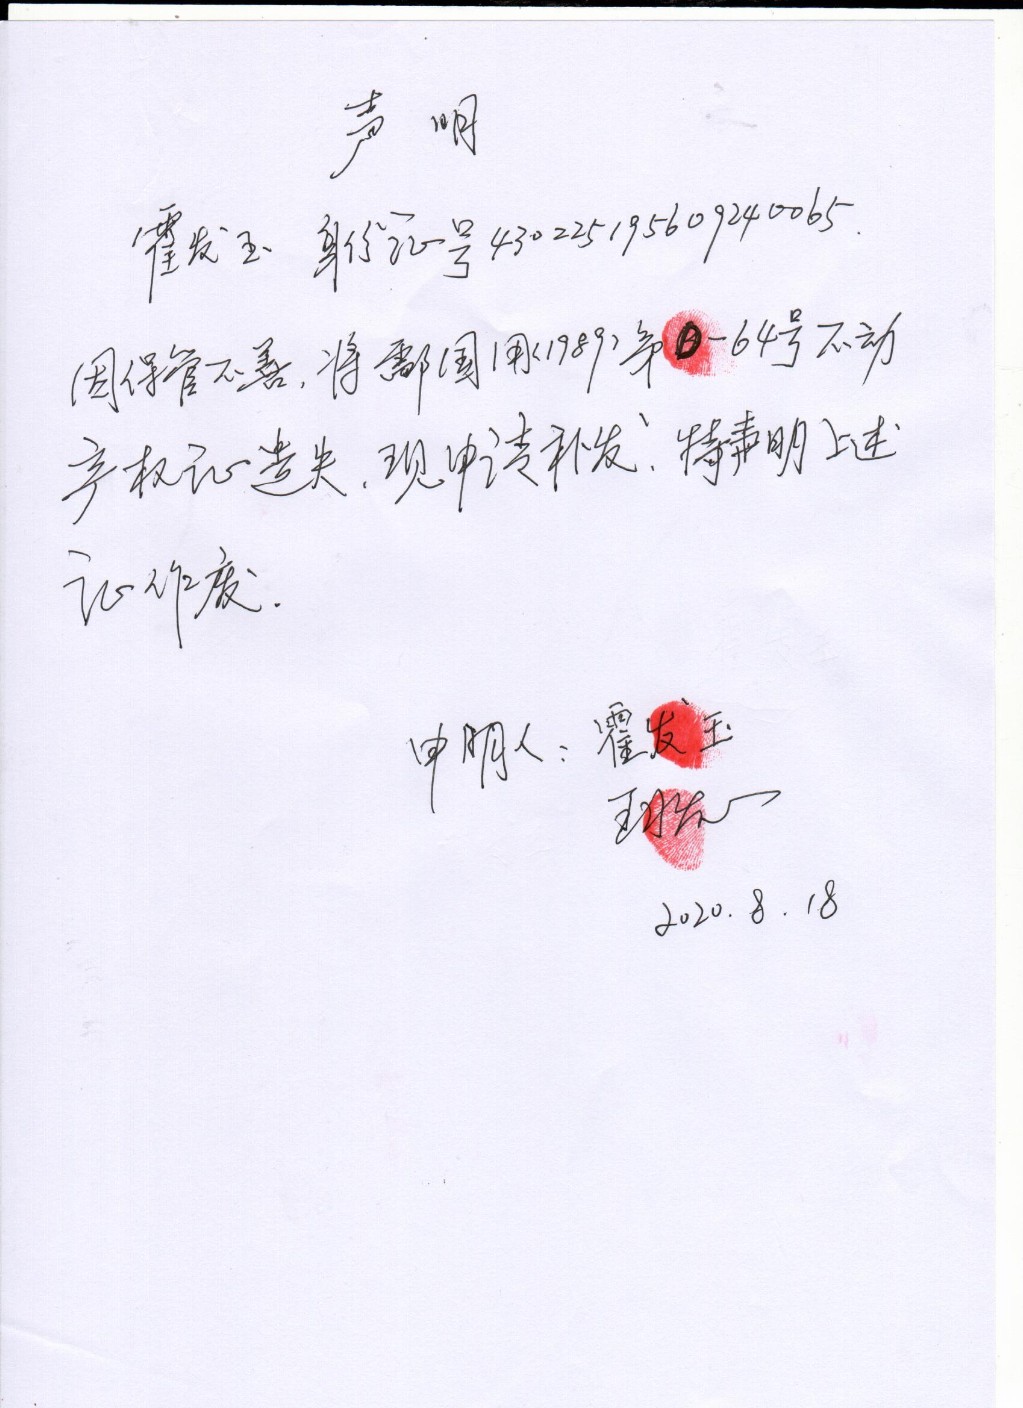 声明
霍发玉 身份证号430225195609240065.
因保管不善,将酃国用(1989)第0-64号不动
产权证遗失,现申请补发,特声明上述
证作废.
申明人:霍发玉
2020.8.18